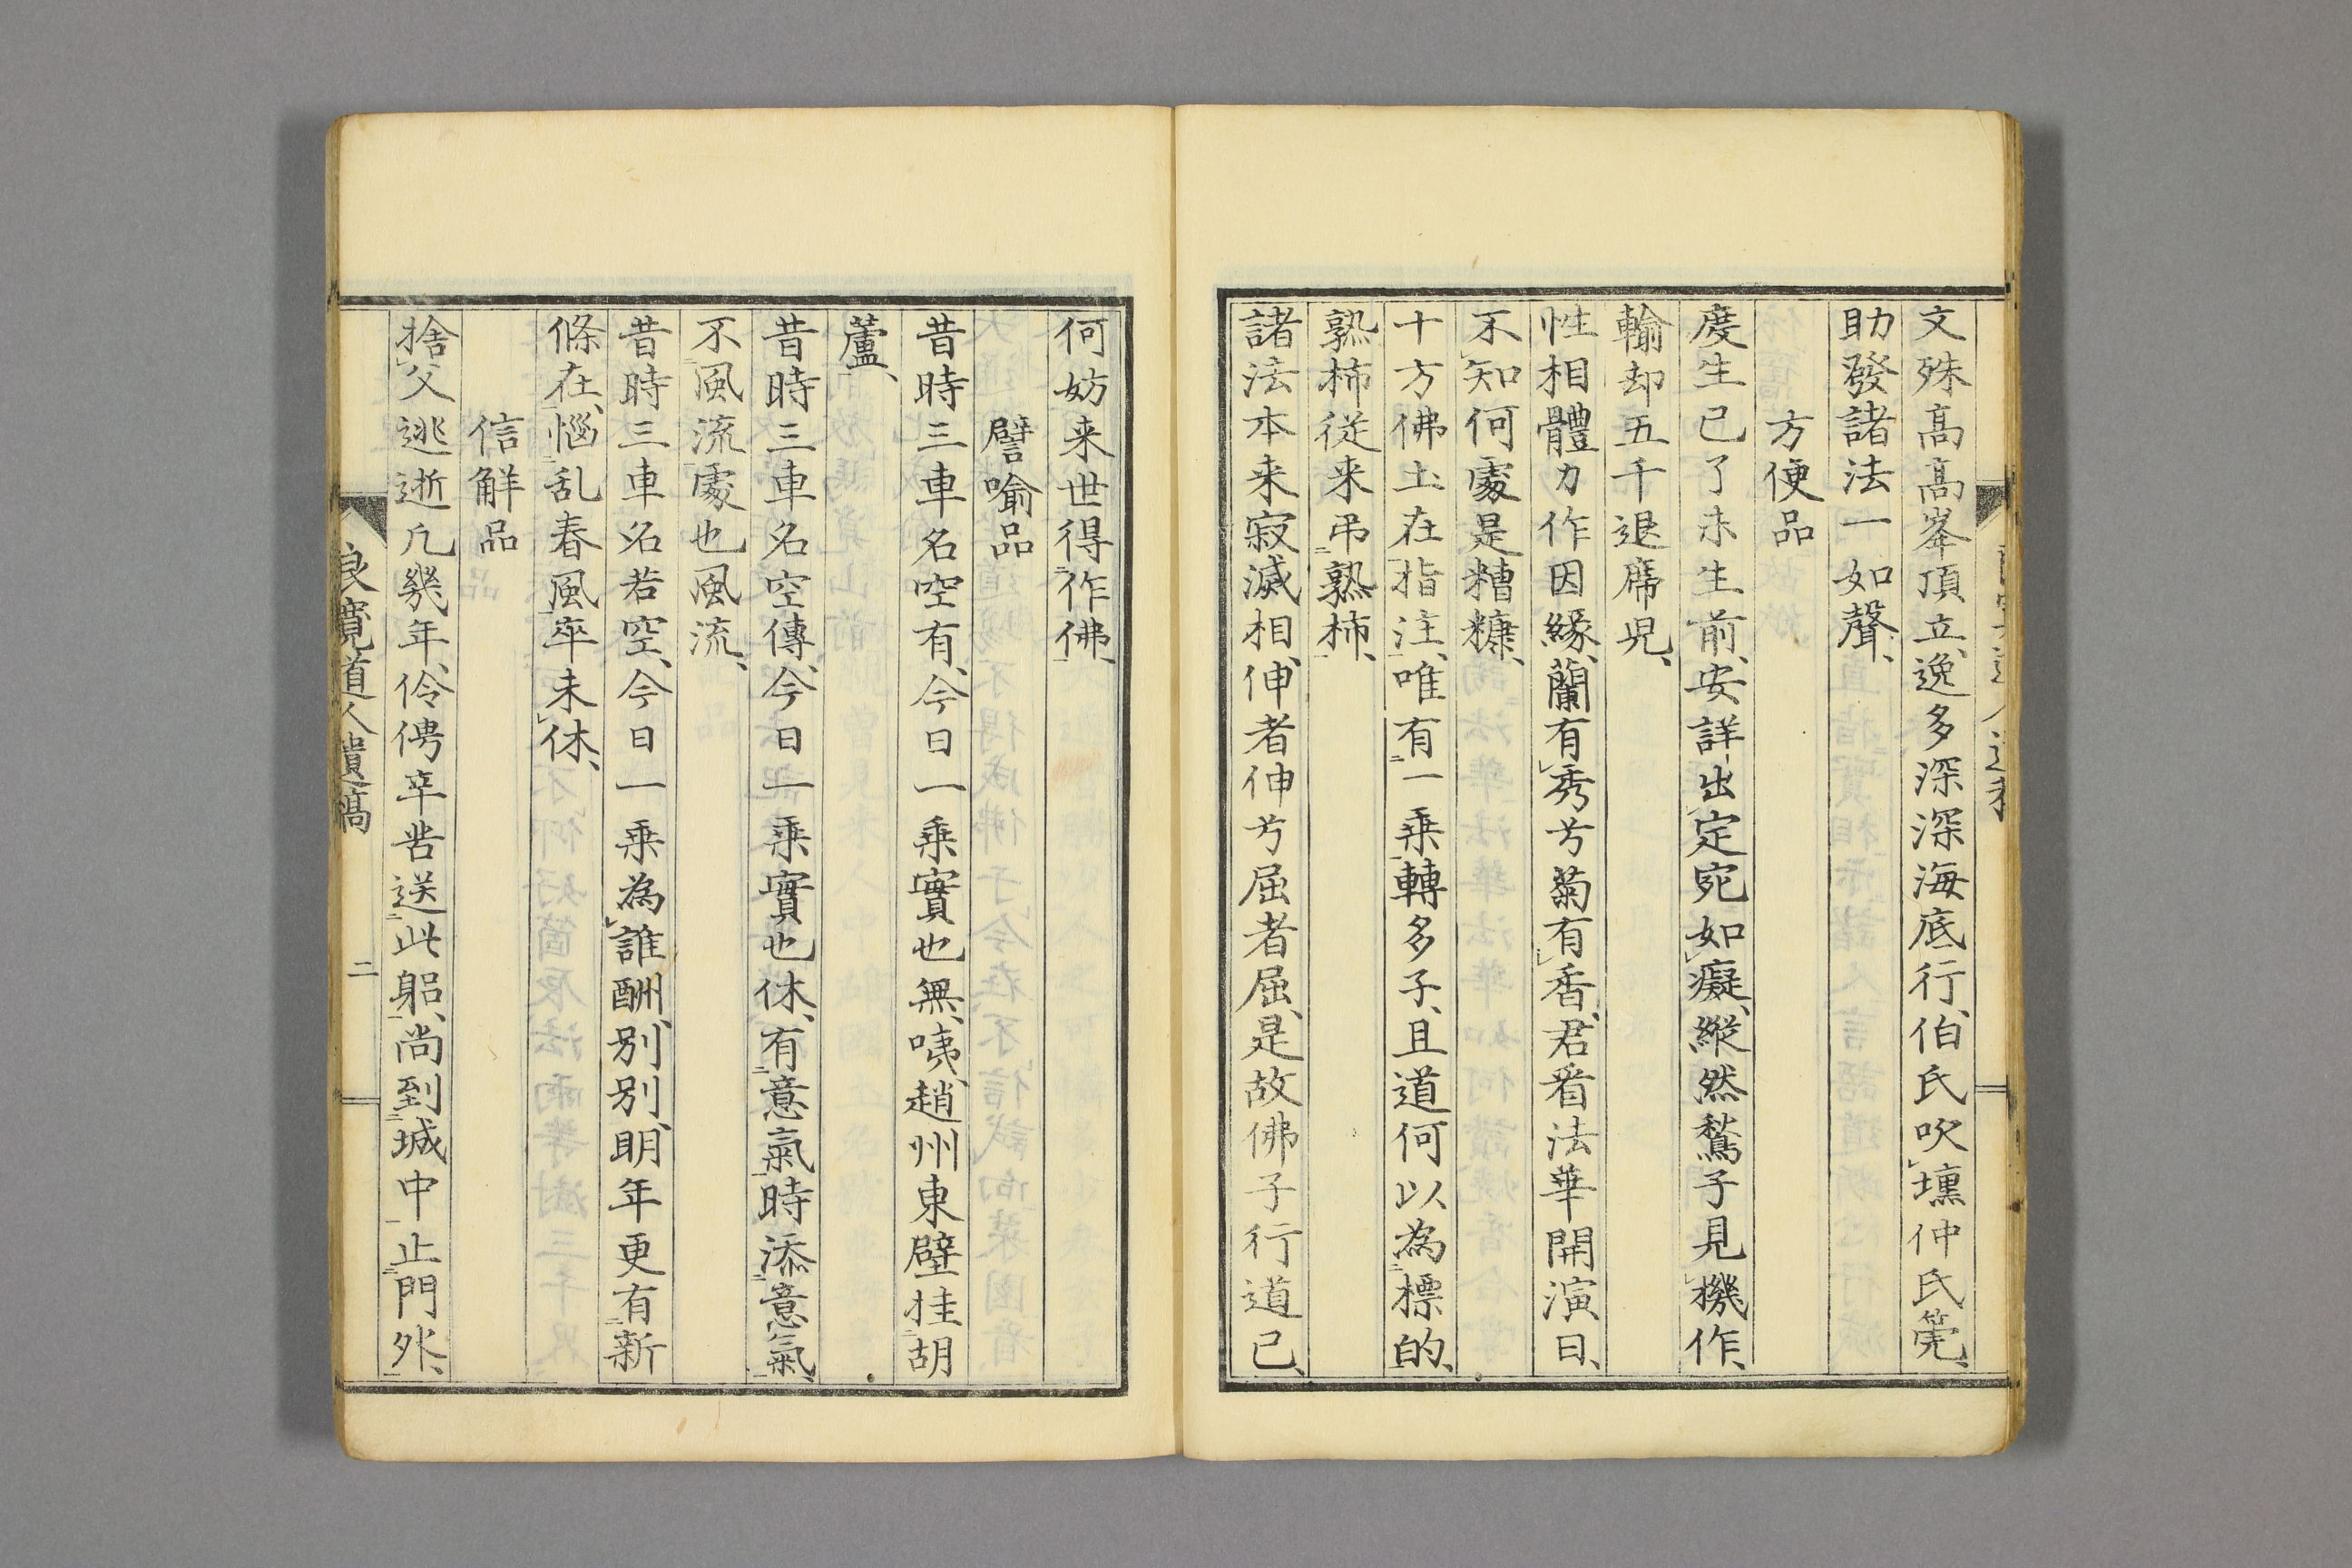 文殊髙髙峯頂立、逸多深深海底行、伯氏吹壎仲氏箎、
助發諸法一如聲、
方便品
度生已了未生前、安詳出定宛如癡、縱然鶖子見機作、
輸却五千退席児、
性相體力作因緣、蘭有秀兮菊有香、君看法華開演日、
不知何處是糟糠、
十方佛土在指注、唯有一乗轉多子、且道何以為標的、
熟柿從来弔熟柿、
諸法本来寂滅相、伸者伸兮屈者屈、是故佛子行道已、
何妨来世得作佛、
譬喻品
昔時三車名空有、今日一乗實也無、咦、趙州東壁挂胡
蘆、
昔時三車名空傳、今日一乗實也休、有意氣時添意氣、
不風流處也風流、
昔時三車名若空、今日一乗為誰酬、別別、明年更有新
條在、惱乱春風卒未休、
信解品
捨父逃逝凢幾年、伶俜辛苦送此躬、尚到城中止門外、
良寛道人遺稿
二